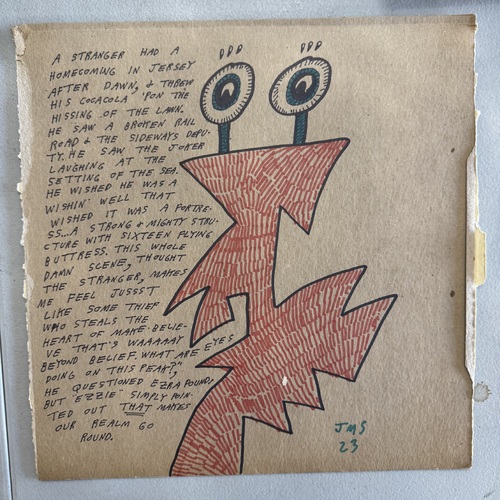 A STRANGER HAD A
HOMECOMING IN JERSEY
AFTER DAWN, & THREW
HIS COCACOLA 'PON THE
HISSING OF THE LAWN.
HE SAW A BROKEN RAIL
ROAD & THE SIDEWAYS DEPU-
TY. HE SAW THE JOKER
LAUGHING AT THE
SETTING OF THE SEA.
HE WISHED HE WAS A
WISHIN' WELL THAT
WISHED IT WAS A FORTRE-
SS...A STRONG & MIGHTY STRU-
CTURE WITH SIXTEEN FLYING
BUTTRESS. THIS WHOLE
DAMN SCENE, THOUGHT
THE STRANGER, MAKES
ME FEEL JUSSST
LIKE SOME THIEF
WHO STEALS THE
HEART OF MAKE-BELIE-
VE THAT'S WAAAAAY
BEYOND BELIEF. WHAT ARE EYES
DOING ON THIS PEAK?",
HE QUESTIONED EZRA POUND,
BUT "EZZIE" SIMPLY POIN-
TED OUT THAT MAKES
OUR REALM GO
ROUND.
JMS
23